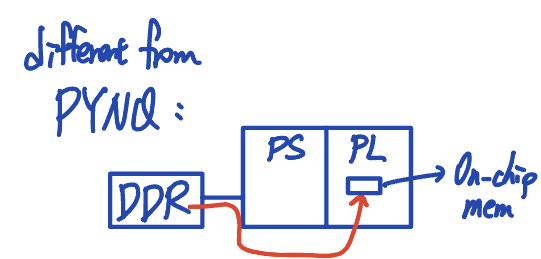 different from
PYNQ :
PS
PL
DDR
On-chip
mem